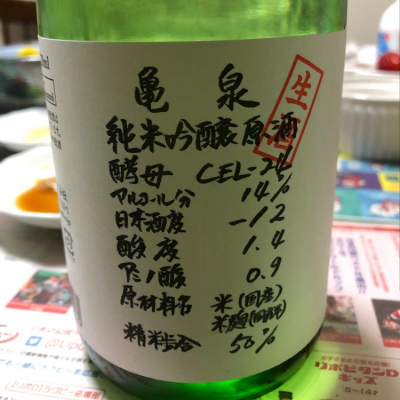 亀泉
生酒
純米吟醸原酒
酵母 CEL-24
アルコール分 14%
日本酒度 -12
酸度 1.4
アミノ酸 0.9
原材料名 米(国産)
米麹(国産米)
精米歩合 50%
リポビタンD
キッズ